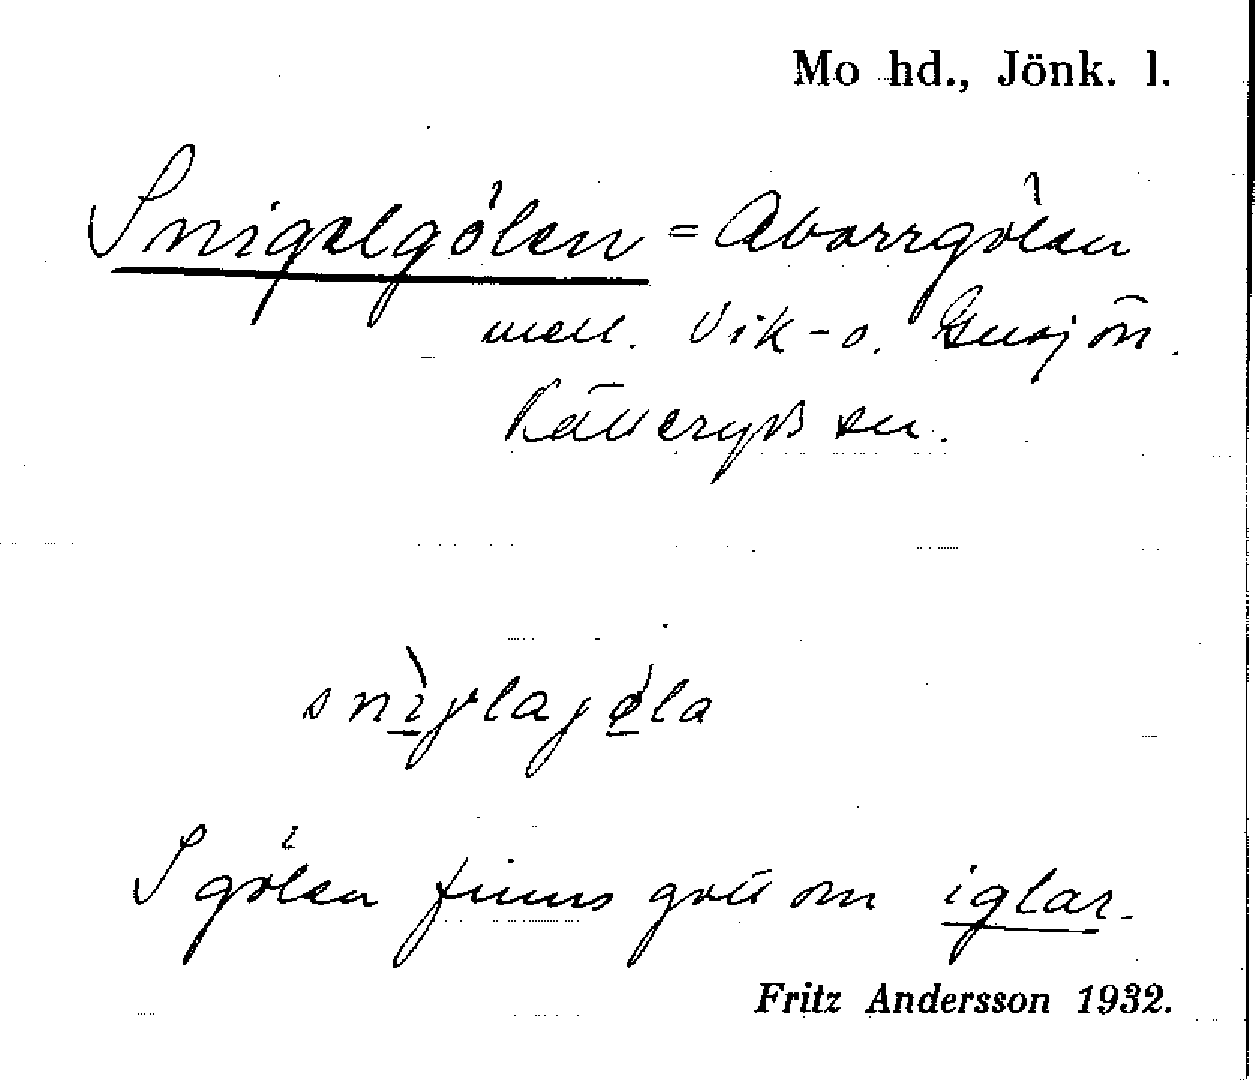 Mo hd., Jönk. l.
Snigelgölen = Aborrgölen
mell. Vik- o. Gusjön.
Källeryds sn.
snìglagǿla
I gölen finns gott om iglar.
Fritz Andersson 1932.